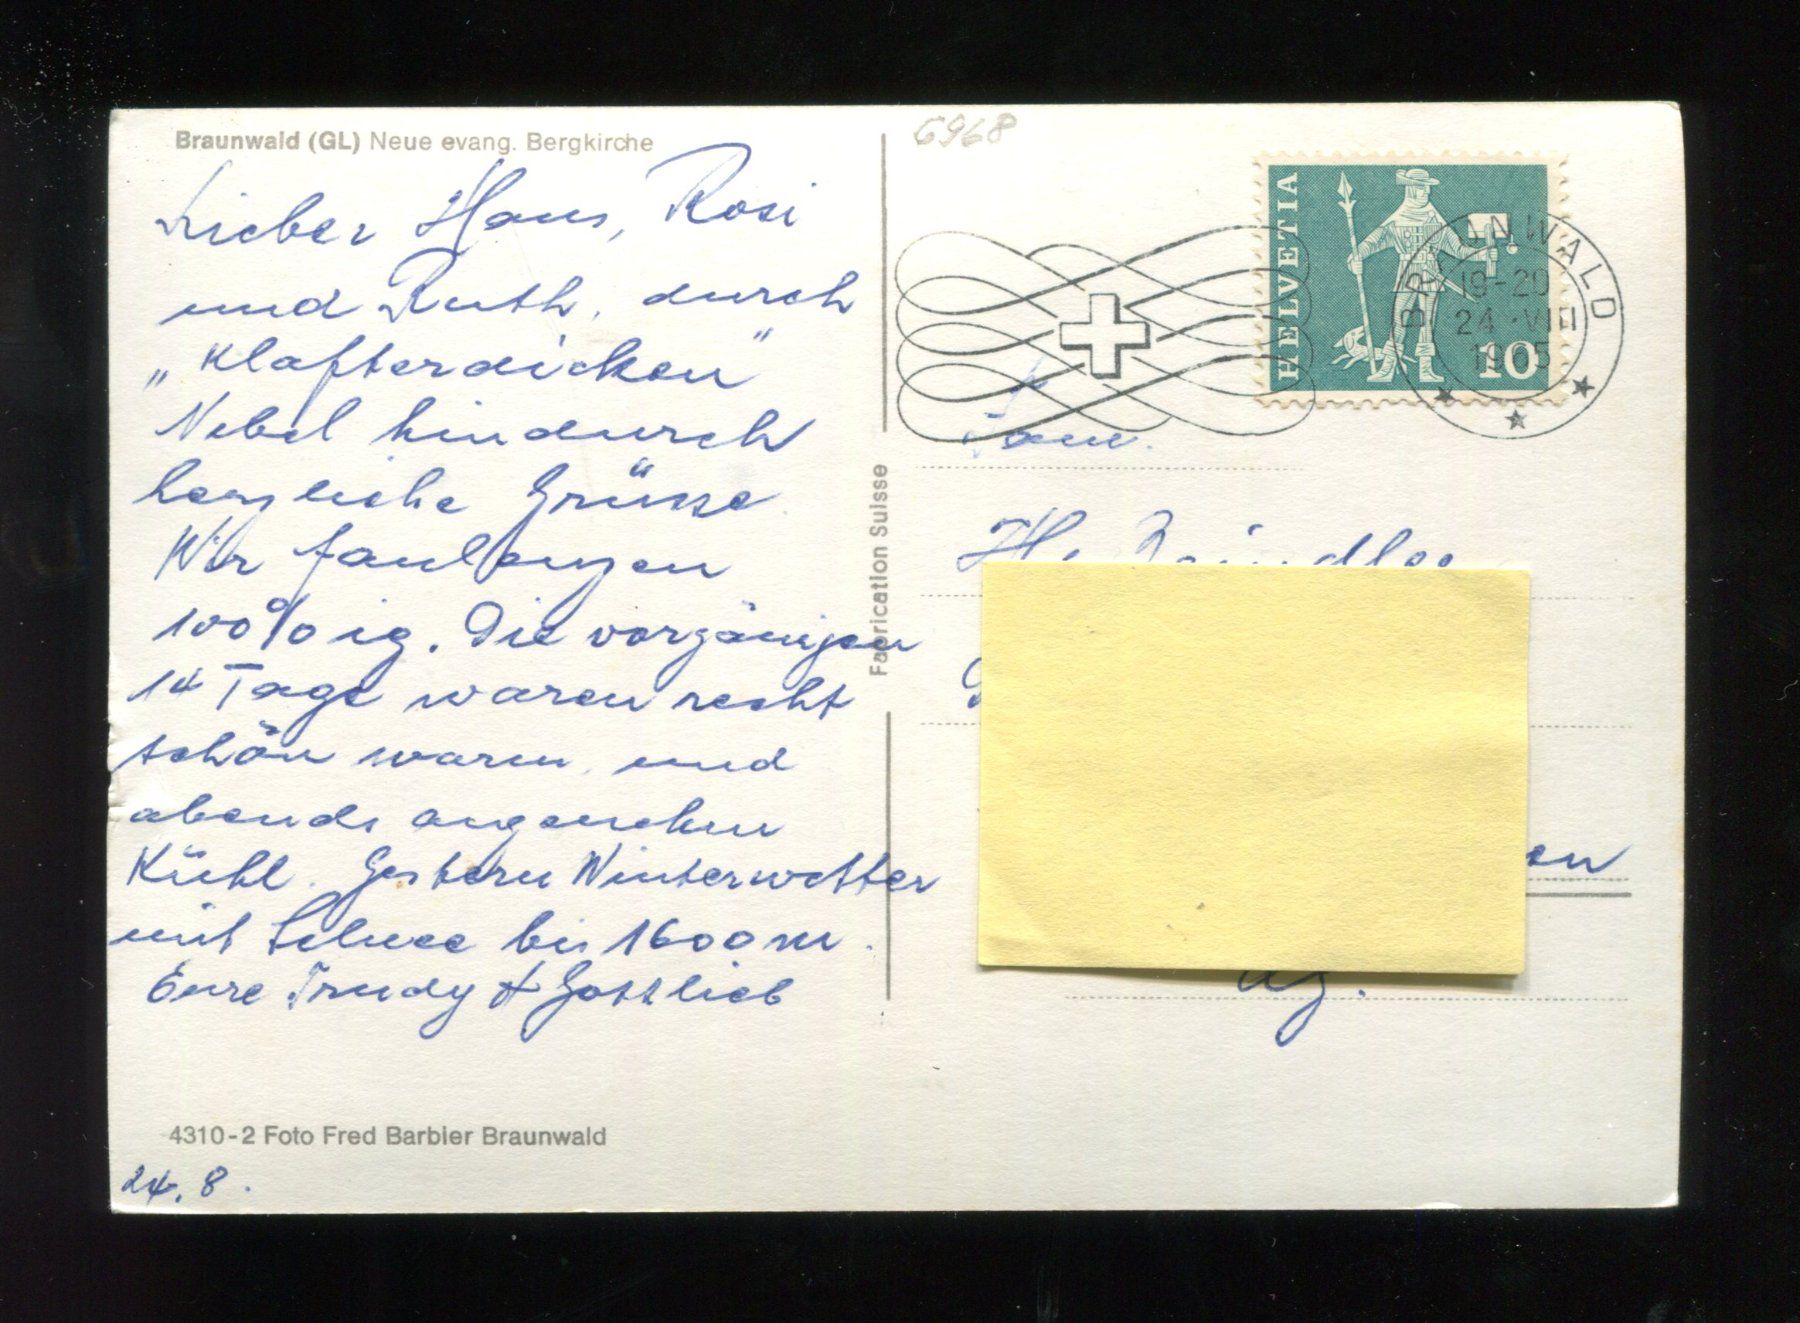 Braunwald (GL) Neue evang. Bergkirche
Lieber Hans, Rosi
und Ruth, durch
„Klafterdicken"
Nebel hindurch
herzliche Grüsse.
Wir faulenzen
100%ig. Die vorgängigen
14 Tage waren recht
schön warm, und
abends angenehm
Kühl. Gestern Winterwetter
mit Schnee bis 1600 m.
Eure Trudy & Gottlieb
4310-2 Foto Fred Barbier Braunwald
24. 8.
Fabrication Suisse
6968
HELVETIA
10
BRAUNWALD
19-20
24.VIII
1965
Fam.
H.
Ag.